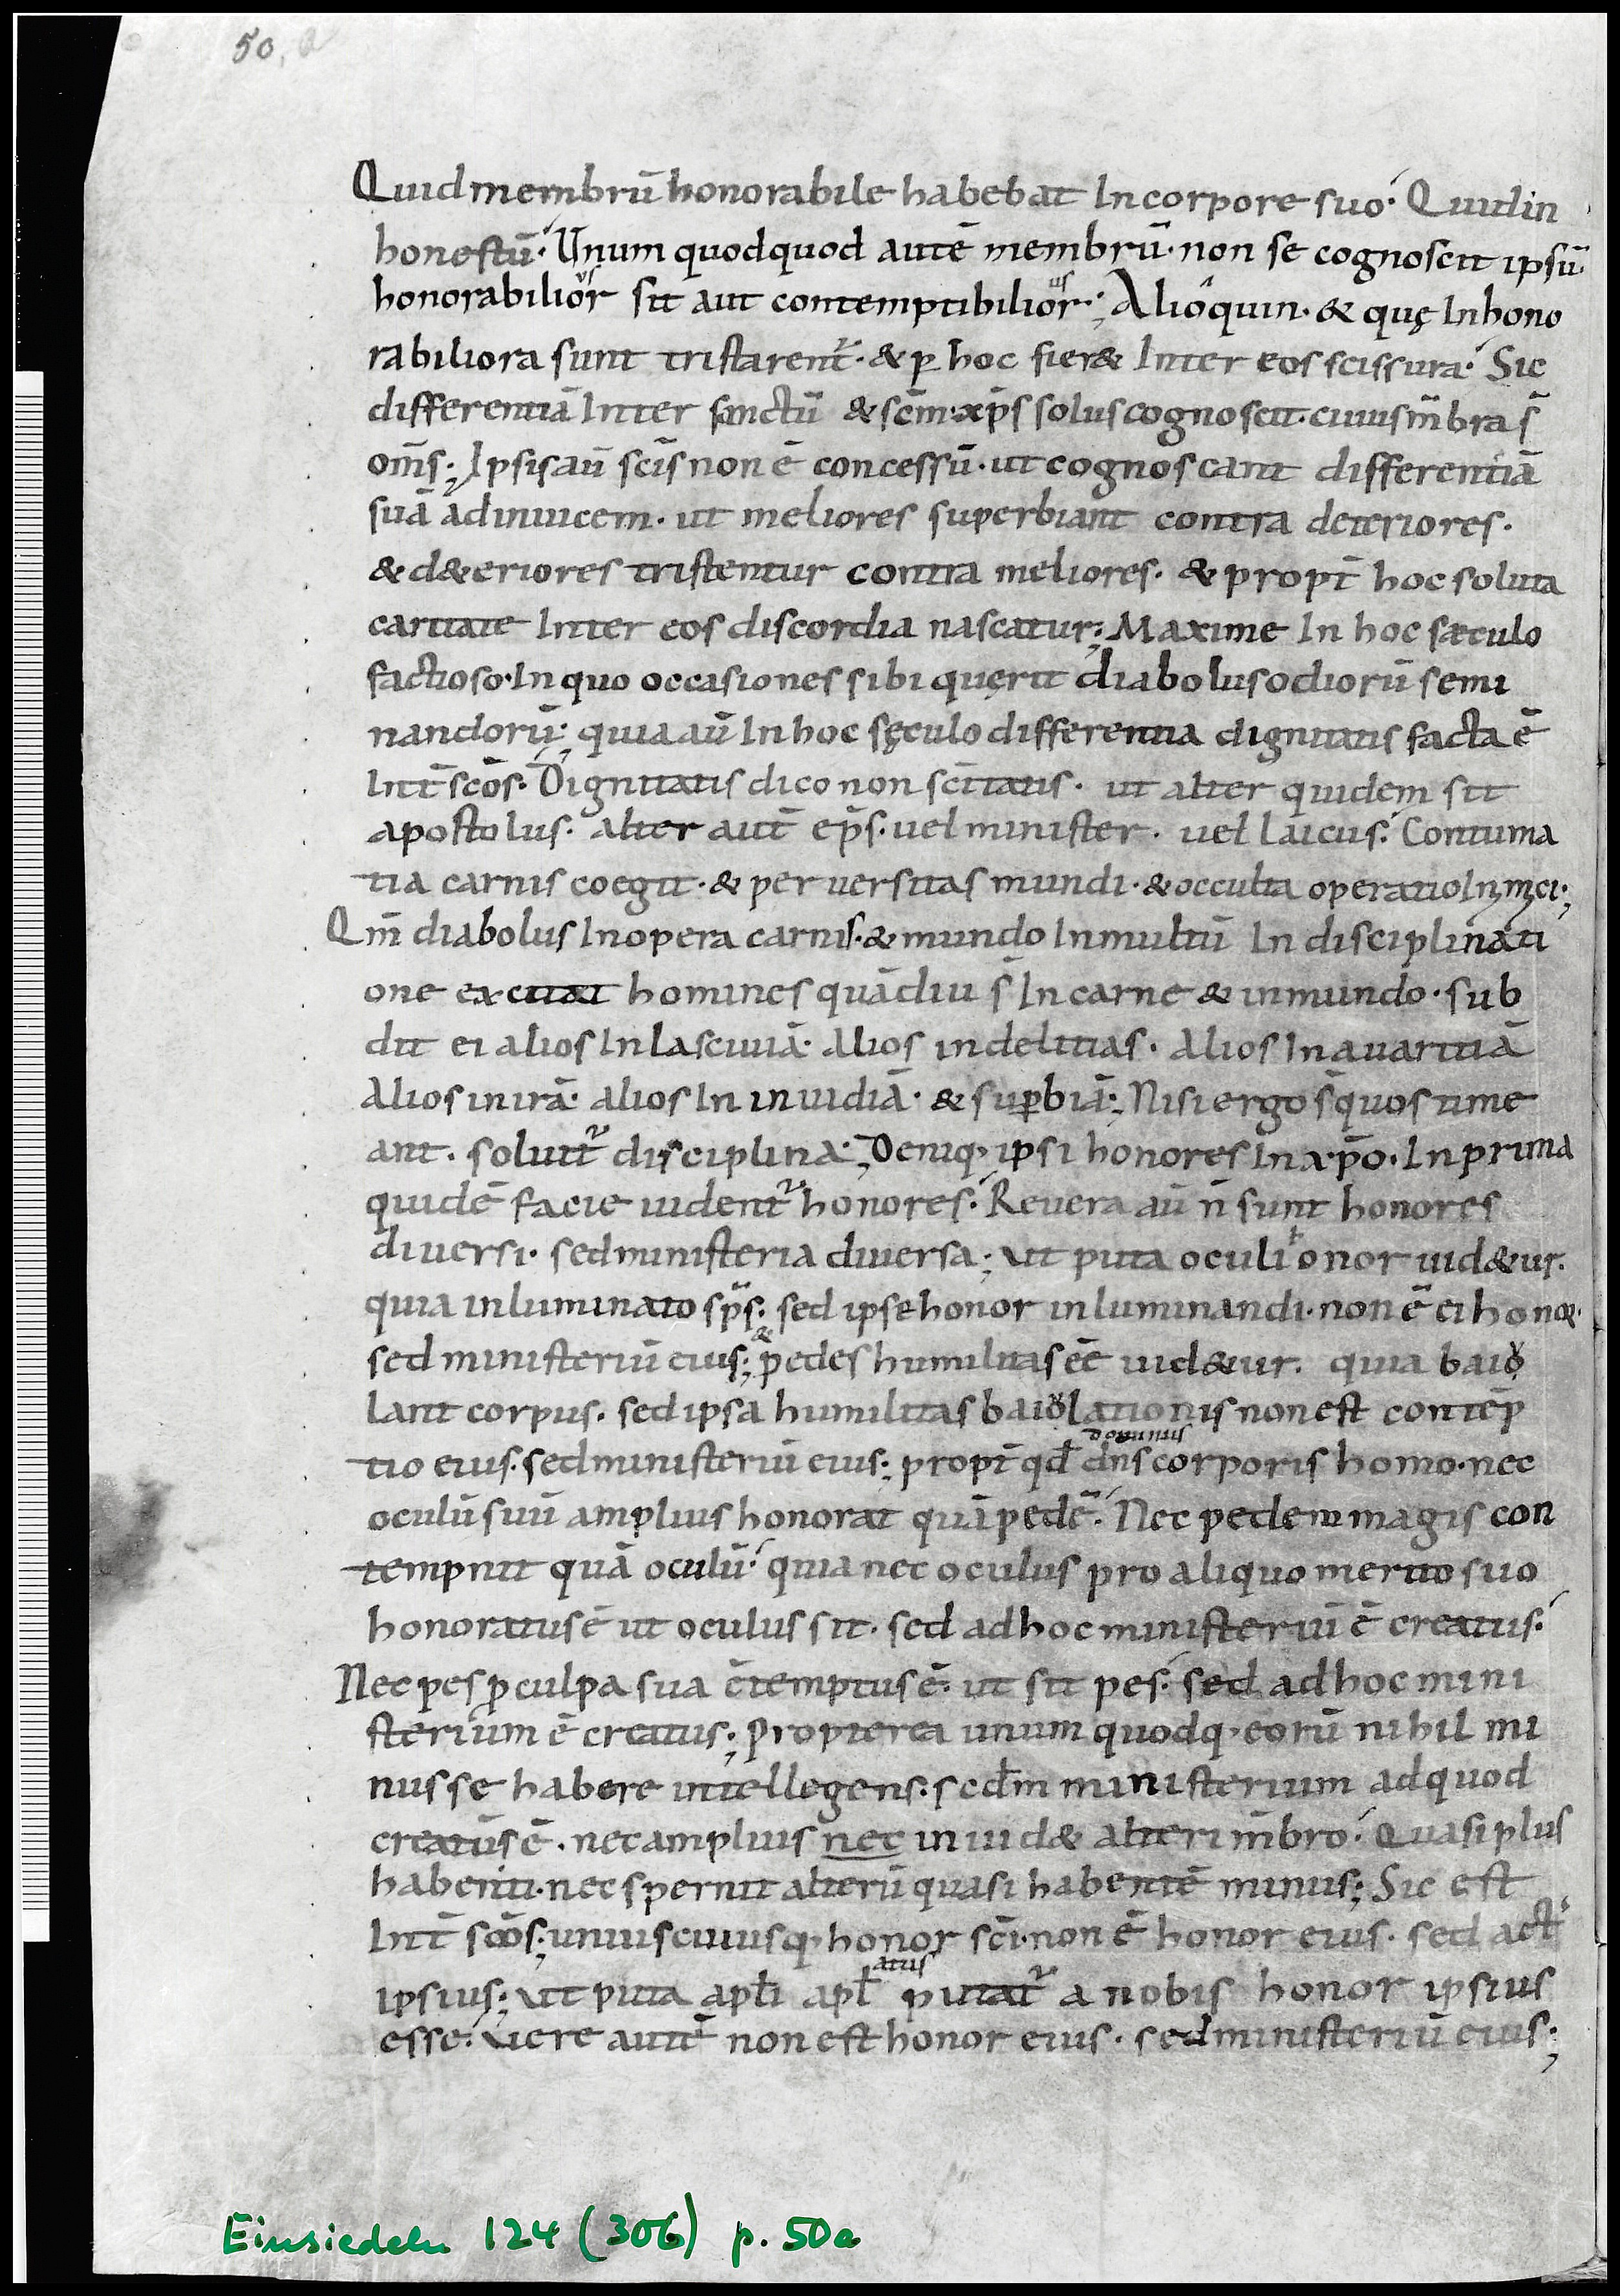 50, a
Quid membrū honorabile habebat In corpore suo· Quid in
honestū· Unum quodquod autē membrū· non se cognoscit ipsū·
honorabilior us sit aut contemptibilior us·; Alioquin· & quę Inhono
rabiliora sunt tristarent᷑· & ꝑ hoc fier& Inter eos scissura· Sic
differentiā Inter sanctū & sc̄m· xp̄s solus cognoscit· cuius m̄bra s̄
om̄s; Ipsis aū sc̄is non ē concessū· ut cognoscant differentiā
suā adinuicem· ut meliores superbiant contra deteriores·
& d&eriores tristentur contra meliores· & propt̄ hoc soluta
caritate Inter eos discordia nascatur; Maxime In hoc sæculo
factioso· In quo occasiones sibi quęrit diabolus odiorū semi
nandorū; quia aū In hoc sęculo differentia dignitatis facta ē
Int̄ sc̄os· Dignitatis dico non sc̄itatis· ut alter quidem sit
apostolus· alter aut̄ ep̄s· uel minister· uel laicus· Contuma
tia carnis coegit· & peruersitas mundi· & occulta operatio Inimici;
Qm̄ diabolus In opera carnis· & mundo In multū In disciplinati
one excitat homines quādiu s̄ In carne & in mundo· sub
dit ei alios In lasciuiā· Alios in delitias· Alios In auaritiā
Alios in irā· alios In inuidiā· & suꝑbiā; Nisi ergo s̄ quos time
ant· soluit᷑ disciplina; Deniq· ipsi honores In xp̄o· In prima
quidē facie uident᷑ honores· Reuera aū n̄ sunt honores
diuersi· sed ministeria diuersa; ut puta oculi honor uid&ur·
quia inluminatio sp̄s· sed ipse honor inluminandi· non ē ei honor·
sed ministeriū eius; & pedes humilitas eē uid&ur· quia baio
lant corpus· sed ipsa humilitas baiolationis non est contēp
tio eius· sed ministeriū eius; propt̄ qđ dominus dn̄s corporis homo· nec
oculū suū amplius honorat quā pedē· Nec pedem magis con
tempnit quā oculū· quia nec oculus pro aliquo merito suo
honoratus ē ut oculus sit· sed ad hoc ministeriū ē creatus·
Nec pes ꝓ culpa sua c̄temptus ē· ut sit pes· sed ad hoc mini
sterium ē creatus; Propterea unum quodq· eorū nihil mi
nus se habere intellegens· scđm ministerium ad quod
creatus ē· nec amplius nec inuid& alteri m̄bro· Quasi plus
habenti· nec spernit alterū quasi habentē minus; Sic est
Int̄ sc̄os; unius cuiusq· honor sc̄i· non ē honor eius· sed act᷒
ipsius; ut puta apłi apł atus putat᷑ a nobis honor ipsius
esse· Vere autē non est honor eius· sed ministeriū eius;
Einsiedeln 124 (306) p. 50a